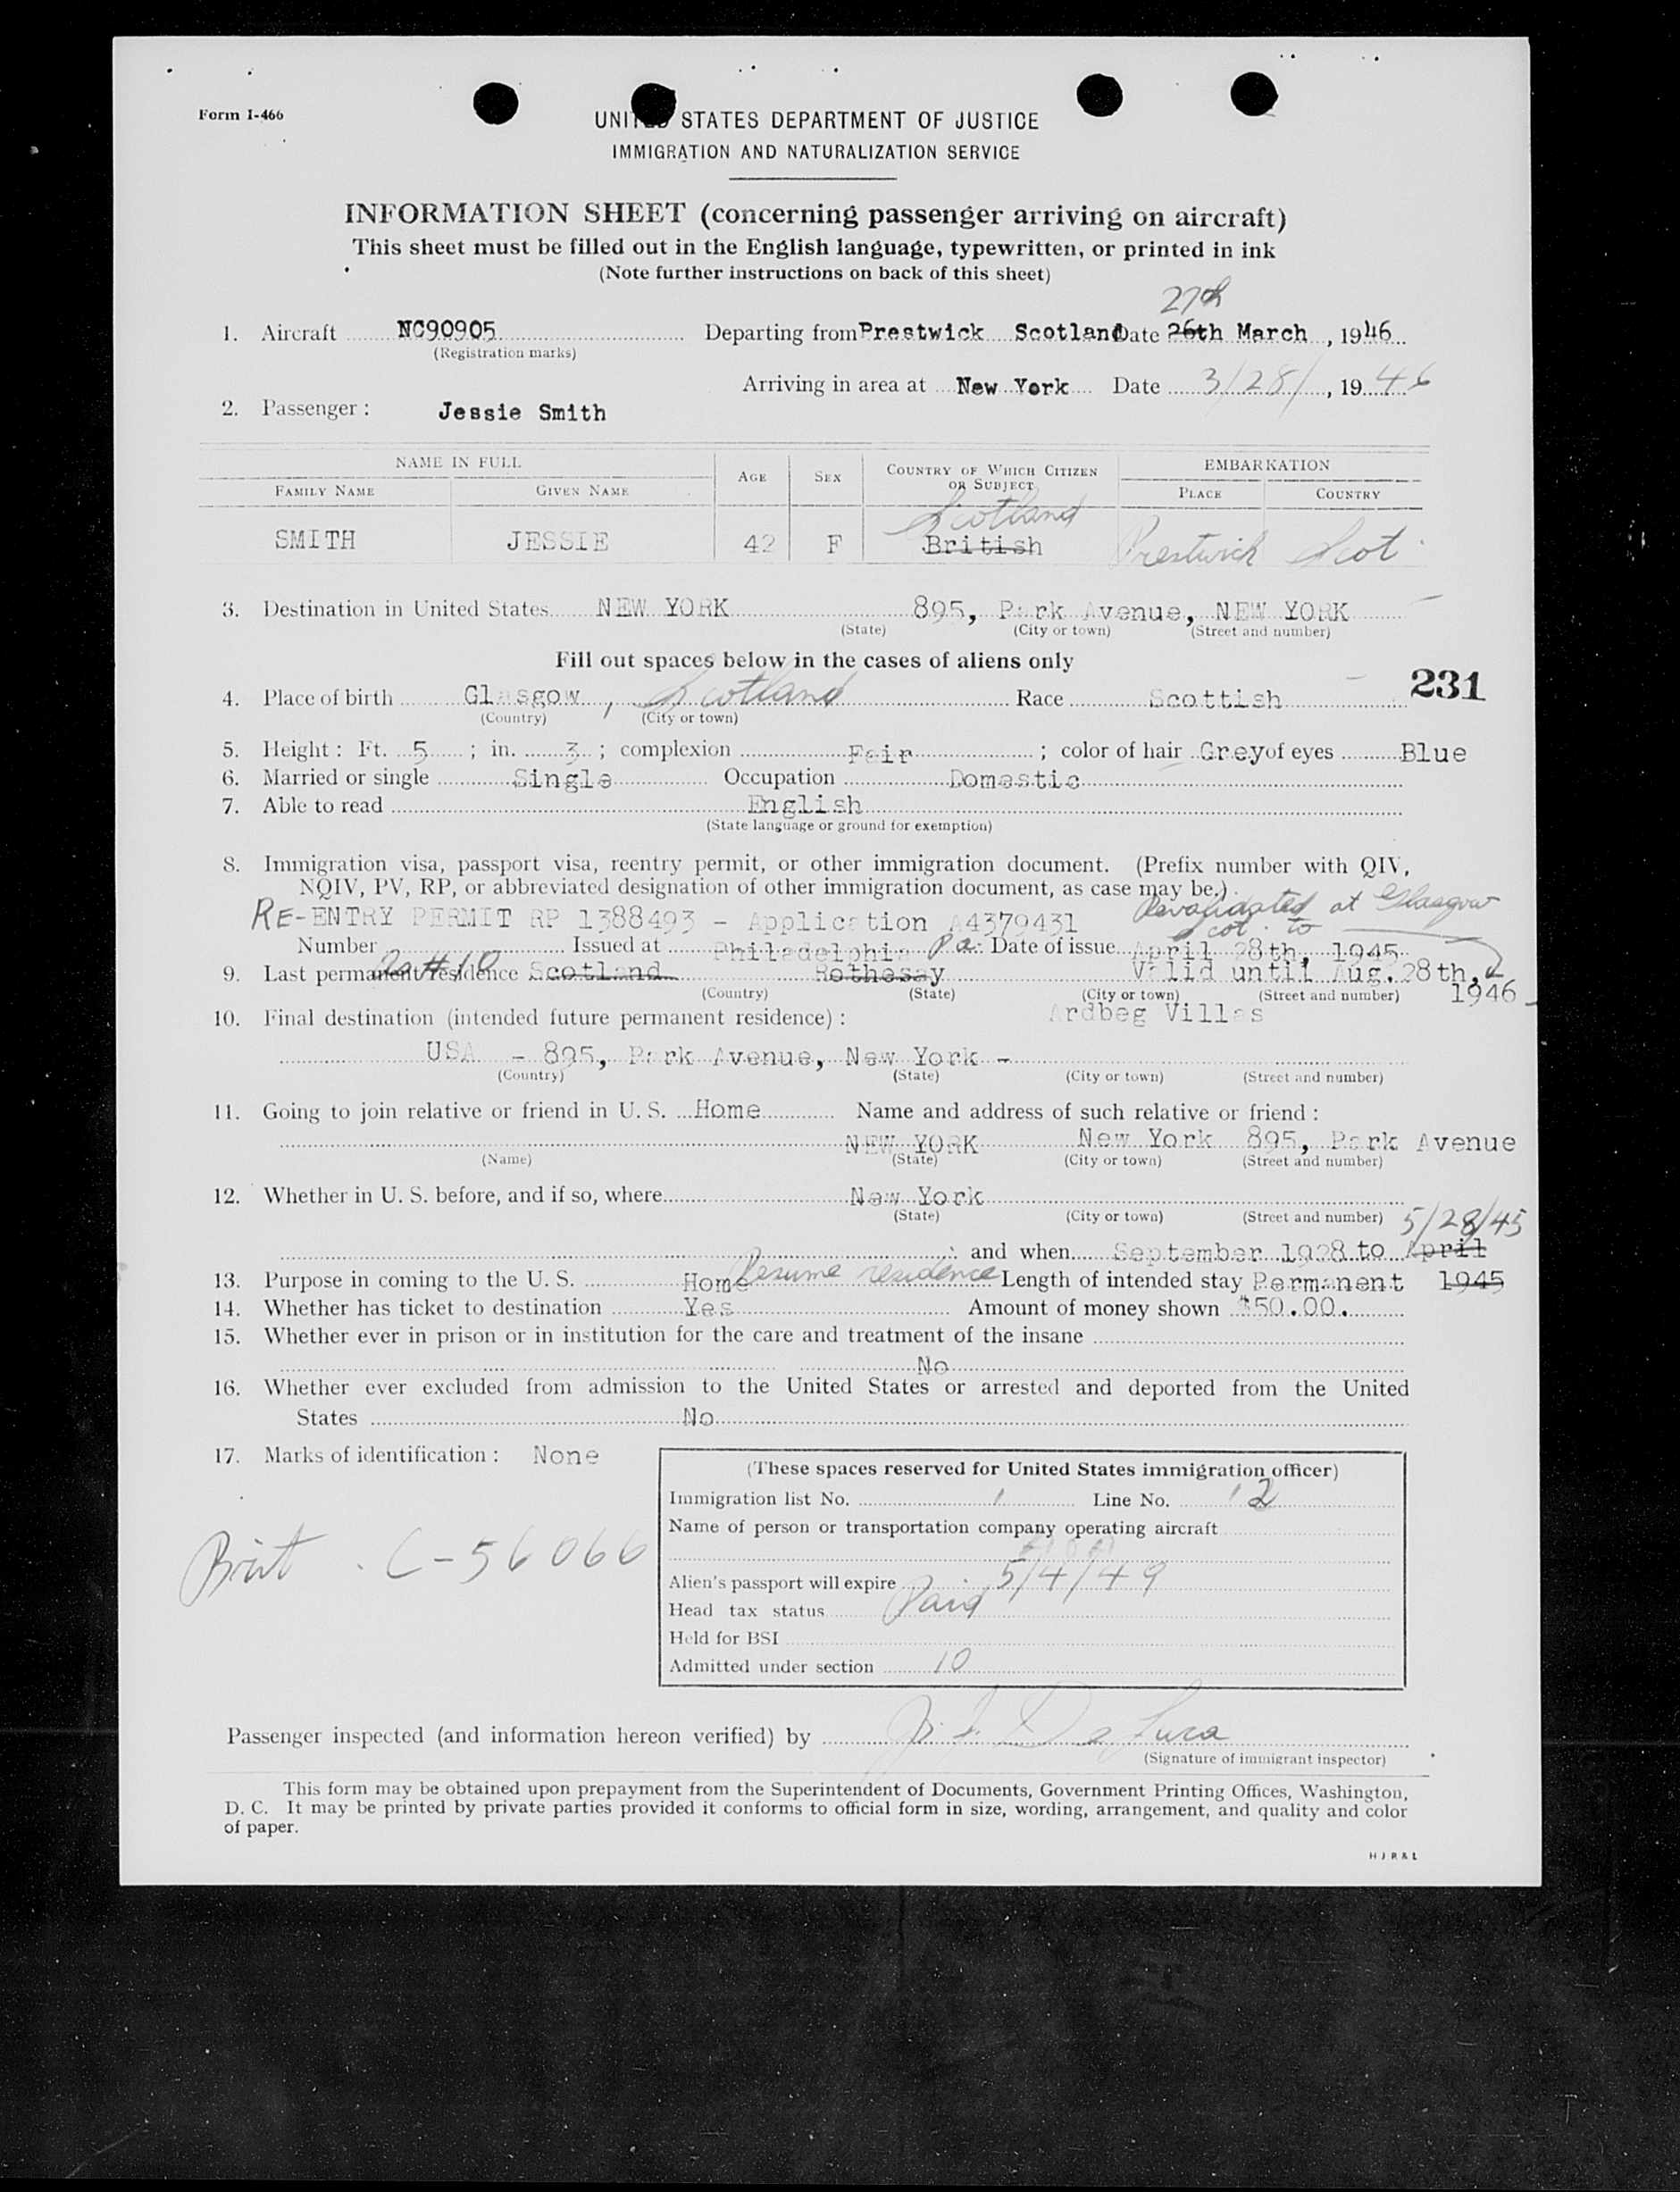 Form I-466
UNITED STATES DEPARTMENT OF JUSTICE
IMMIGRATION AND NATURALIZATION SERVICE
INFORMATION SHEET (concerning passenger arriving on aircraft)
This sheet must be filled out in the English language, typewritten, or printed in ink
(Note further instructions on back of this sheet)
27th
1. Aircraft NC90905 Departing from Prestwick Scotland Date 26th March, 1946
(Registration marks)
Arriving in area at New York Date 3/28/, 1946
2. Passenger: Jessie Smith
NAME IN FULL AGE SEX COUNTRY OF WHICH CITIZEN OR SUBJECT EMBARKATION
FAMILY NAME GIVEN NAME PLACE COUNTRY
Scotland
SMITH JESSIE 42 F British Prestwick Scot.
3. Destination in United States NEW YORK 895, Park Avenue, NEW YORK
(State) (City or town) (Street and number)
Fill out spaces below in the cases of aliens only
231
4. Place of birth Glasgow, Scotland Race Scottish
(Country) (City or town)
5. Height: Ft. 5; in. 3; complexion Fair; color of hair Grey of eyes Blue
6. Married or single Single Occupation Domestic
7. Able to read English
(State language or ground for exemption)
8. Immigration visa, passport visa, reentry permit, or other immigration document. (Prefix number with QIV,
NQIV, PV, RP, or abbreviated designation of other immigration document, as case may be.)
Revalidated at Glasgow
Scot. to
RE-ENTRY PERMIT RP 1388493 - Application A4379431
Number Issued at Philadelphia Pa. Date of issue April 28th, 1945
9. Last permanent residence Scotland Rothesay Valid until Aug. 28th,
(Country) (State) (City or town) (Street and number) 1946
10. Final destination (intended future permanent residence): Ardbeg Villas
USA - 895, Park Avenue, New York -
(Country) (State) (City or town) (Street and number)
11. Going to join relative or friend in U. S. Home Name and address of such relative or friend:
NEW YORK New York 895, Park Avenue
(Name) (State) (City or town) (Street and number)
12. Whether in U. S. before, and if so, where New York
(State) (City or town) (Street and number) 5/28/45
and when September 1928 to April
13. Purpose in coming to the U. S. Home Resume residence Length of intended stay Permanent 1945
14. Whether has ticket to destination Yes Amount of money shown $50.00.
15. Whether ever in prison or in institution for the care and treatment of the insane
No
16. Whether ever excluded from admission to the United States or arrested and deported from the United
States No
17. Marks of identification: None
(These spaces reserved for United States immigration officer)
Immigration list No. 1 Line No. 2
Name of person or transportation company operating aircraft
Brit. C-56066
Alien's passport will expire 5/4/49
Head tax status Paid
Held for BSI
Admitted under section 10
Passenger inspected (and information hereon verified) by
(Signature of immigrant inspector)
This form may be obtained upon prepayment from the Superintendent of Documents, Government Printing Offices, Washington,
D. C. It may be printed by private parties provided it conforms to official form in size, wording, arrangement, and quality and color
of paper.
H J R & L